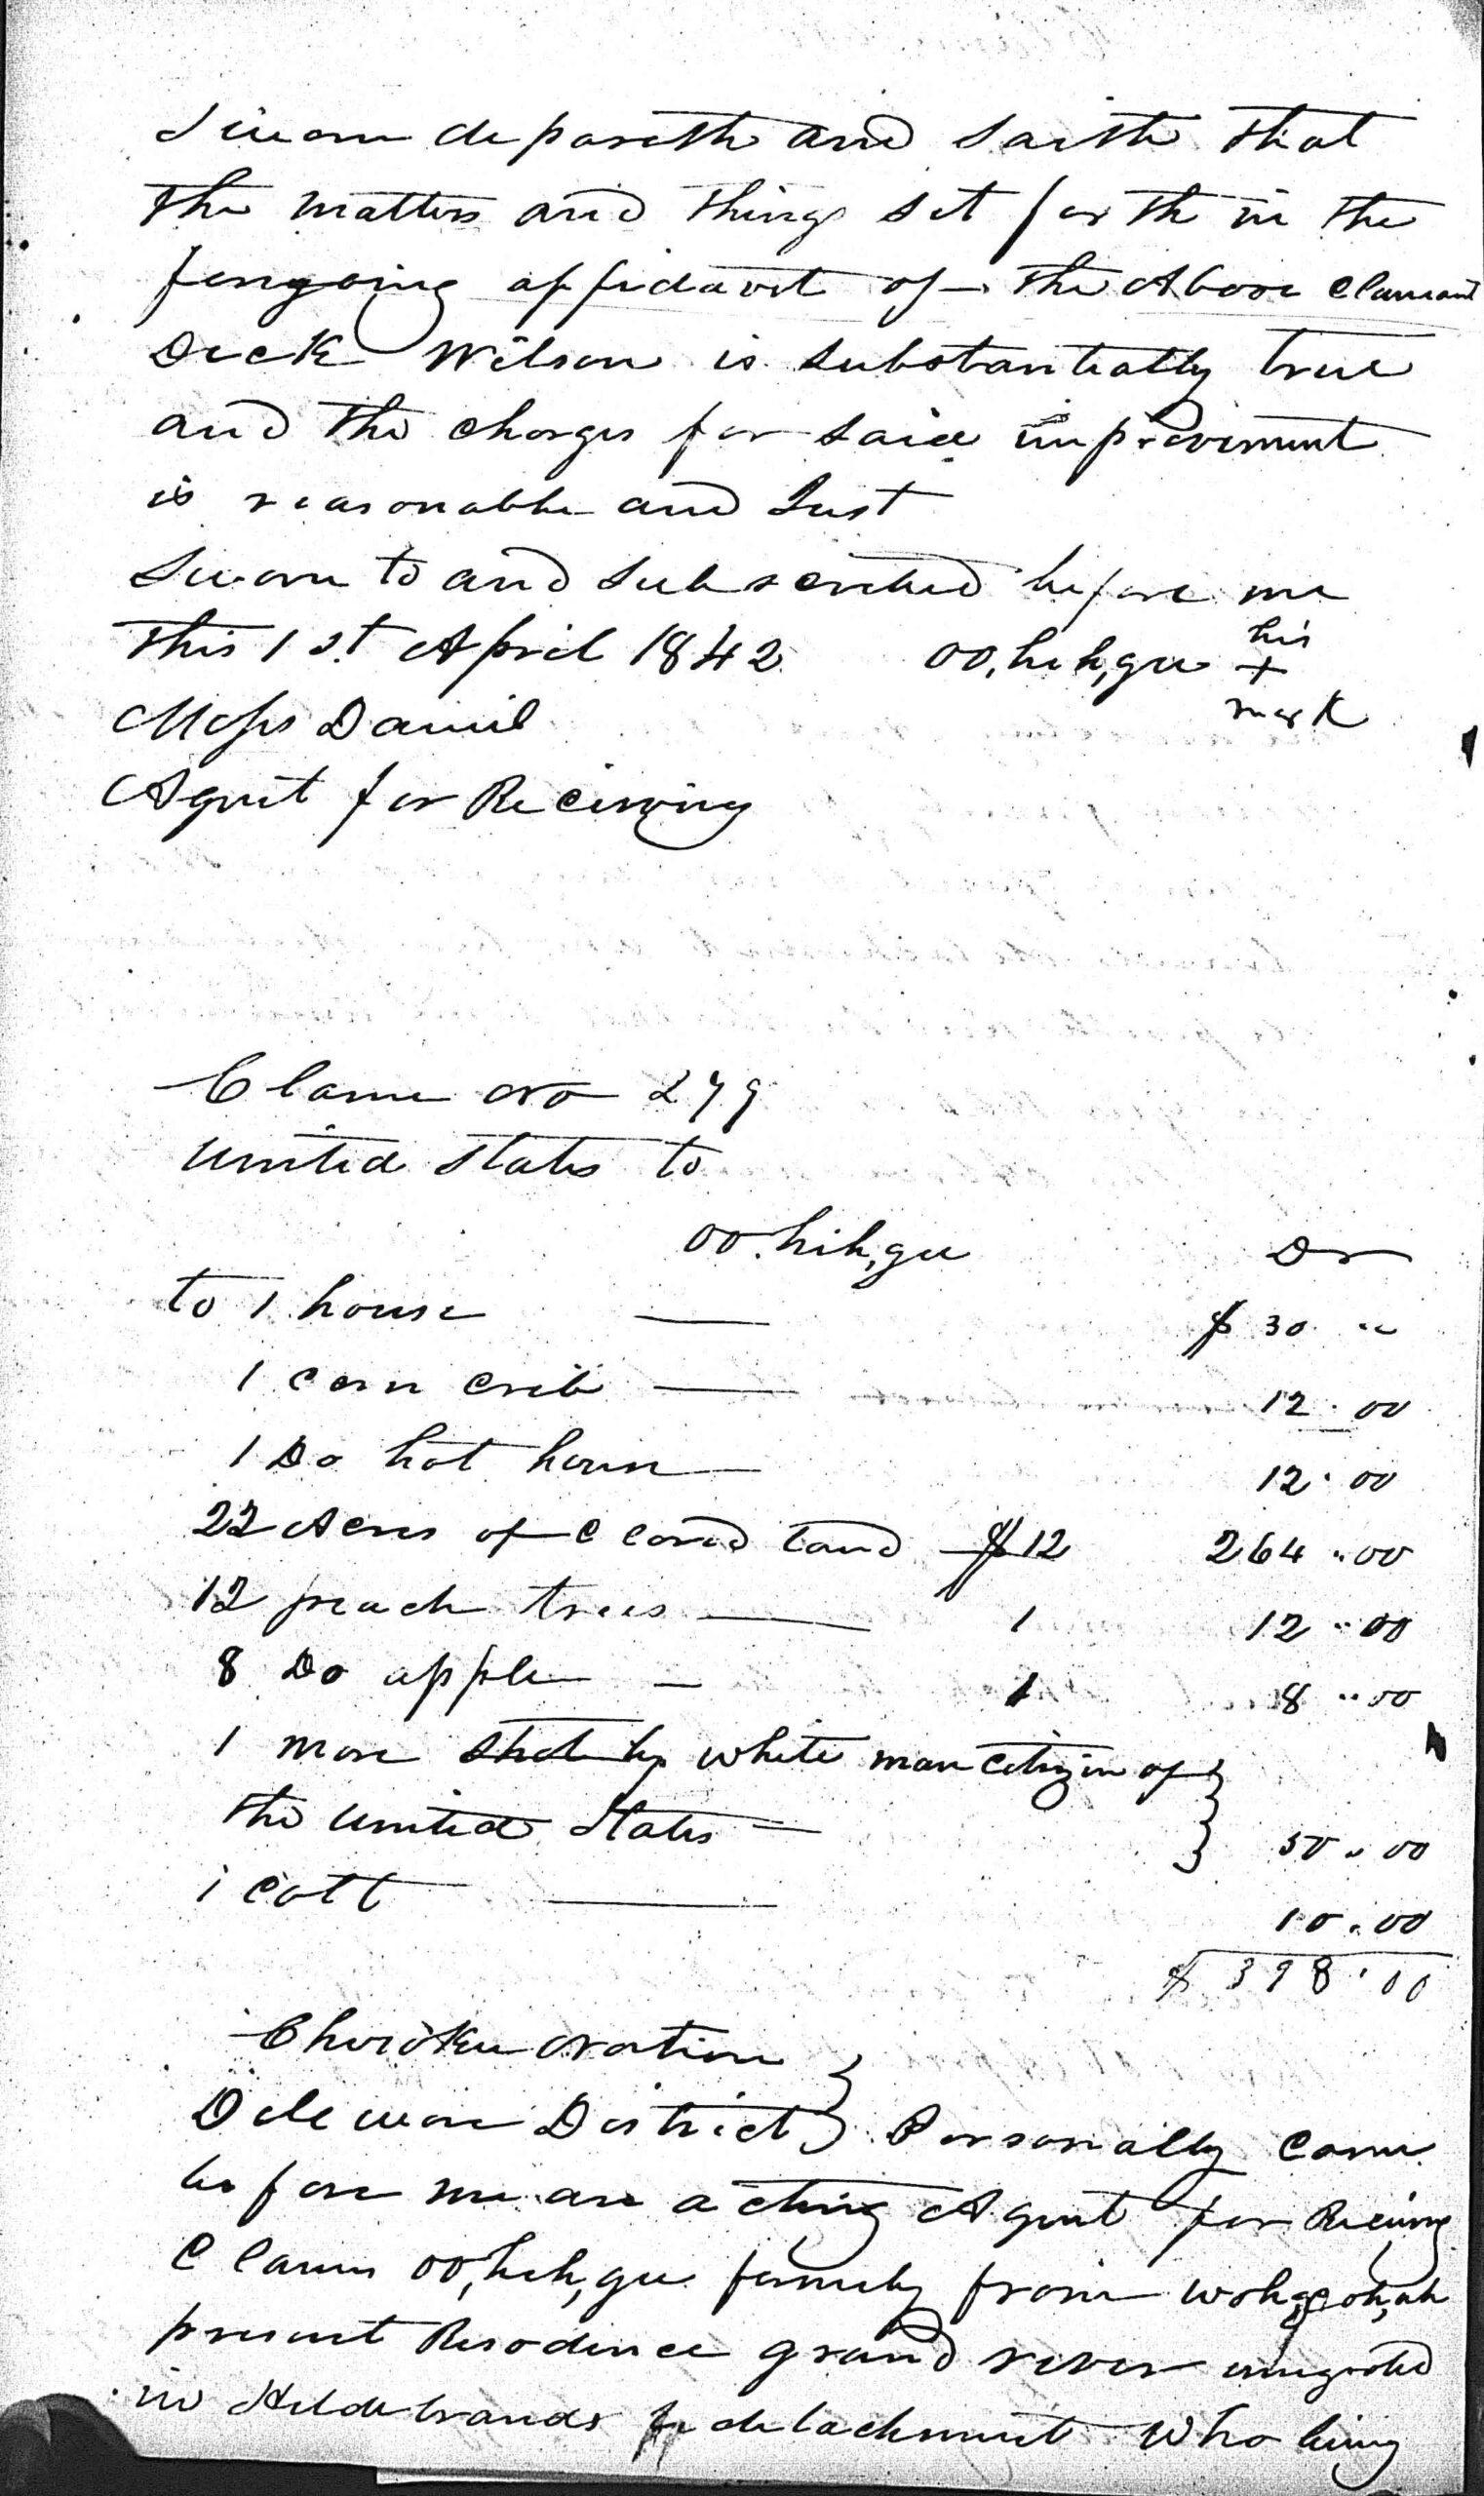 Sworn deposeth and saith that
the matters and things set forth in the
forgoing affidavit of the Above Claimant
Dick Wilson is substantially true
and the charges for said improvement
is reasonable and Just
Sworn to and subscribed before me
this 1st April 1842 oo,hih,gee his
+
mark
Moses Daniel
Agent for Receiving
Claim No 279
United States to
oo.hih,gee Dr
to 1 house $ 30 "
1 corn crib 12.00
1 Do hot house 12.00
22 Acres of Cleared land $12 264.00
12 peach trees 1 12.00
8 Do apple 1 8.00
1 mare Shot by white man Citizen of
the United States 50.00
1 Colt 10.00
$ 398.00
Cherokee Nation
Deleware District Personally came
before me an acting Agent for Receiving
Claims oo,hih,gee formerly from
present Residence grand river emigrated
in Hildebrands detachment who being